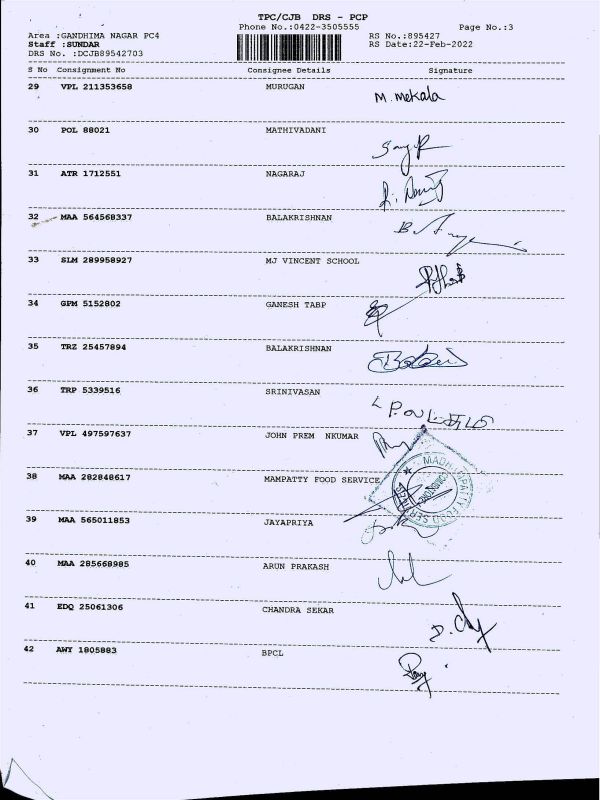 TPC/CJB DRS - PCP
Phone No.:0422-3505555 Page No.:3
Area :GANDHIMA NAGAR PC4 RS No.:895427
Staff :SUNDAR RS Date:22-Feb-2022
DRS No. :DCJB89542703
S No Consignment No Consignee Details Signature
29 VPL 211353658 MURUGAN M. Mekala
30 POL 88021 MATHIVADANI
31 ATR 1712551 NAGARAJ
32 MAA 564568337 BALAKRISHNAN
33 SLM 289958927 MJ VINCENT SCHOOL
34 GPM 5152802 GANESH TABP
35 TRZ 25457894 BALAKRISHNAN
36 TRP 5339516 SRINIVASAN
37 VPL 497597637 JOHN PREM NKUMAR
38 MAA 282848617 MAMPATTY FOOD SERVICE
39 MAA 565011853 JAYAPRIYA
40 MAA 285668985 ARUN PRAKASH
41 EDQ 25061306 CHANDRA SEKAR
42 AWY 1805883 BPCL